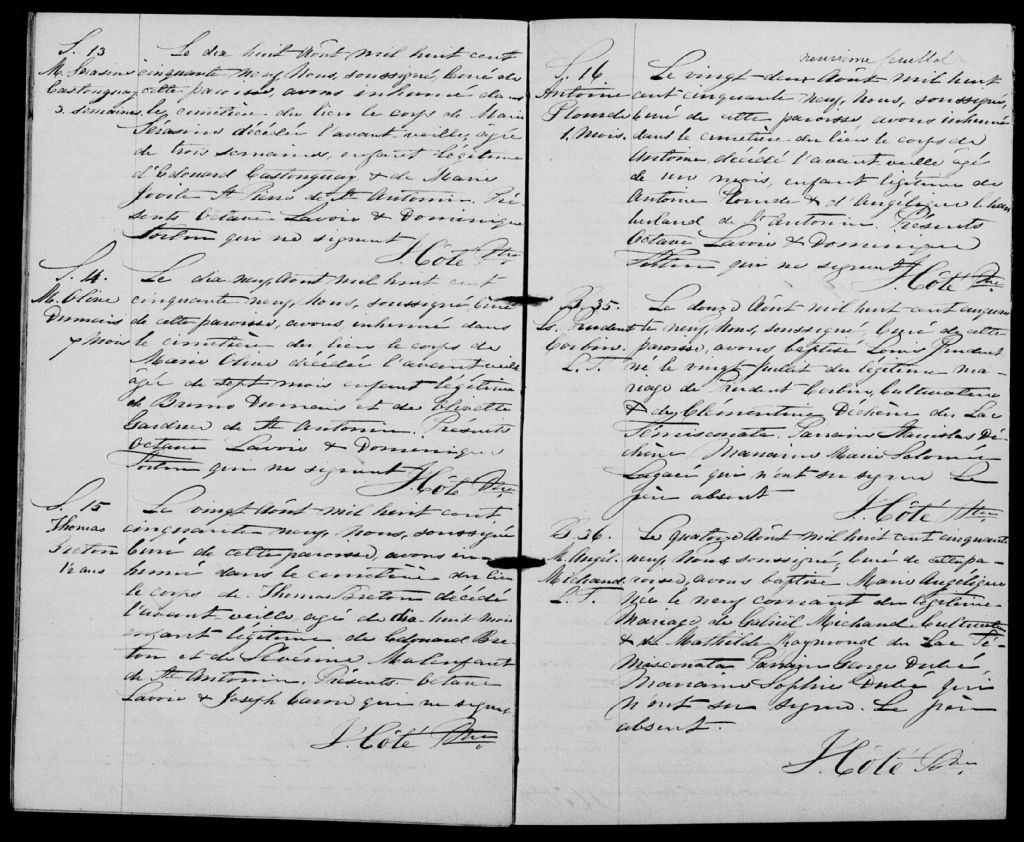 S. 13
M. Sérasine
Castonguay
3. semaines
Le dix huit Août mil huit cent
cinquante neuf, Nous, soussigné, Curé de
cette paroisse, avons inhumé dans
le cimetière du lieu le corps de Marie
Sérasine décédée l'avant veille, agée
de trois semaines, enfant légitime
d'Edouard Castonguay & de Marie
Jovite St Pierre de St Antonin. Pré-
sents Octave Lavoie & Dominique
qui ne signent
J. Côté Ptre
S. 14.
M. Oline
Dumais
7 Mois
Le dix neuf Août mil huit cent
cinquante neuf, Nous, soussigné, Curé
de cette paroisse, avons inhumé dans
le cimetière du lieu le corps de
Marie Oline décédée l'avant veille
âgée de sept mois enfant légitime
de Bruno Dumais et de Olivette
Gardner de St Antonin. Présents
Octave Lavoie & Dominique
qui ne signent
J. Côté Ptre
S. 15
Thomas
Breton
1½ ans
Le vingt Août mil huit cent
cinquante neuf, Nous, soussigné
Curé de cette paroisse, avons in-
humé dans le cimetière du lieu
le corps de Thomas Breton décédé
l'avant veille, agé de dix huit mois
enfant légitime de Edouard Bre-
ton et de Séverine Malenfant
de St Antonin. Présents. Octave
Lavoie & Joseph Caron qui ne signent
J. Côté Ptre
neuvième feuillet
S. 16.
Antoine
Plourde
1. Mois.
Le vingt deux Août mil huit
cent cinquante neuf, Nous, soussigné,
Curé de cette paroisse avons inhumé
dans le cimetière du lieu le corps de
Antoine, décédé l'avant veille âgé
de un mois, enfant légitime de
Antoine Plourde & d'Angélique Cham
berland de St Antonin. Présents
Octave Lavoie & Dominique
qui ne signent
J. Côté Ptre.
B. 35.
Ls. Prudent
Corbin
L. T.
Le douze Août mil huit cent cinquan
te neuf, Nous, soussigné, Curé de cette
paroisse, avons baptisé Louis Prudent
né le vingt juillet du légitime ma-
riage de Prudent Corbin, Cultivateur
& de Clémentine Dechène du Lac
Témisconata. Parrain Stanislas Dé-
chène Marraine Marie Salomée
Lagacé qui n'ont su signer Le
père absent
J. Côté Ptre.
B. 36.
M. Angél.
Michaud.
L. T.
Le quatorze Août mil huit cent cinquante
neuf, Nous soussigné, Curé de cette pa-
roisse, avons baptisé Marie Angélique
née le neuf courant du légitime
mariage de Gabriel Michaud Cultivateur
& de Mathilde Raymond du Lac Té-
misconata Parrain George Dubé
Marraine Sophie Dubé qui
n'ont su signer. Le père
absent.
J. Côté Ptre.